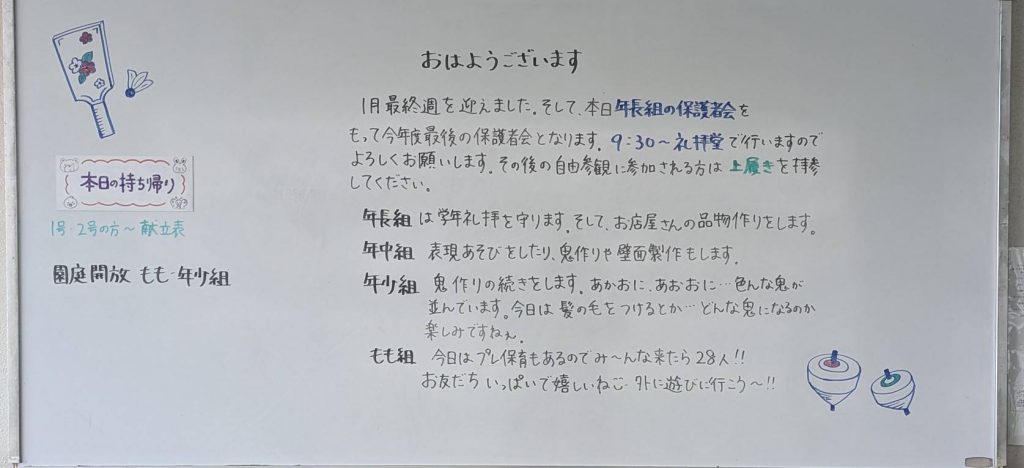 おはようございます
1月最終週を迎えました。そして、本日年長組の保護者会を
もって今年度最後の保護者会となります。9:30〜礼拝堂で行いますので
よろしくお願いします。その後の自由参観に参加される方は上履きを持参
してください。
年長組 は学年礼拝を守ります。そして、お店屋さんの品物作りをします。
年中組 表現あそびをしたり、鬼作りや壁面製作もします。
年少組 鬼作りの続きをします。あかおに、あおおに…色んな鬼が
並んでいます。今日は髪の毛をつけるとか…どんな鬼になるのか
楽しみですねぇ。
もも組 今日はプレ保育もあるのでみ〜んな来たら28人!!
お友だちいっぱいで嬉しいねご 外に遊びに行こう〜!!
本日の持ち帰り
1号・2号の方〜献立表
園庭開放 もも・年少組